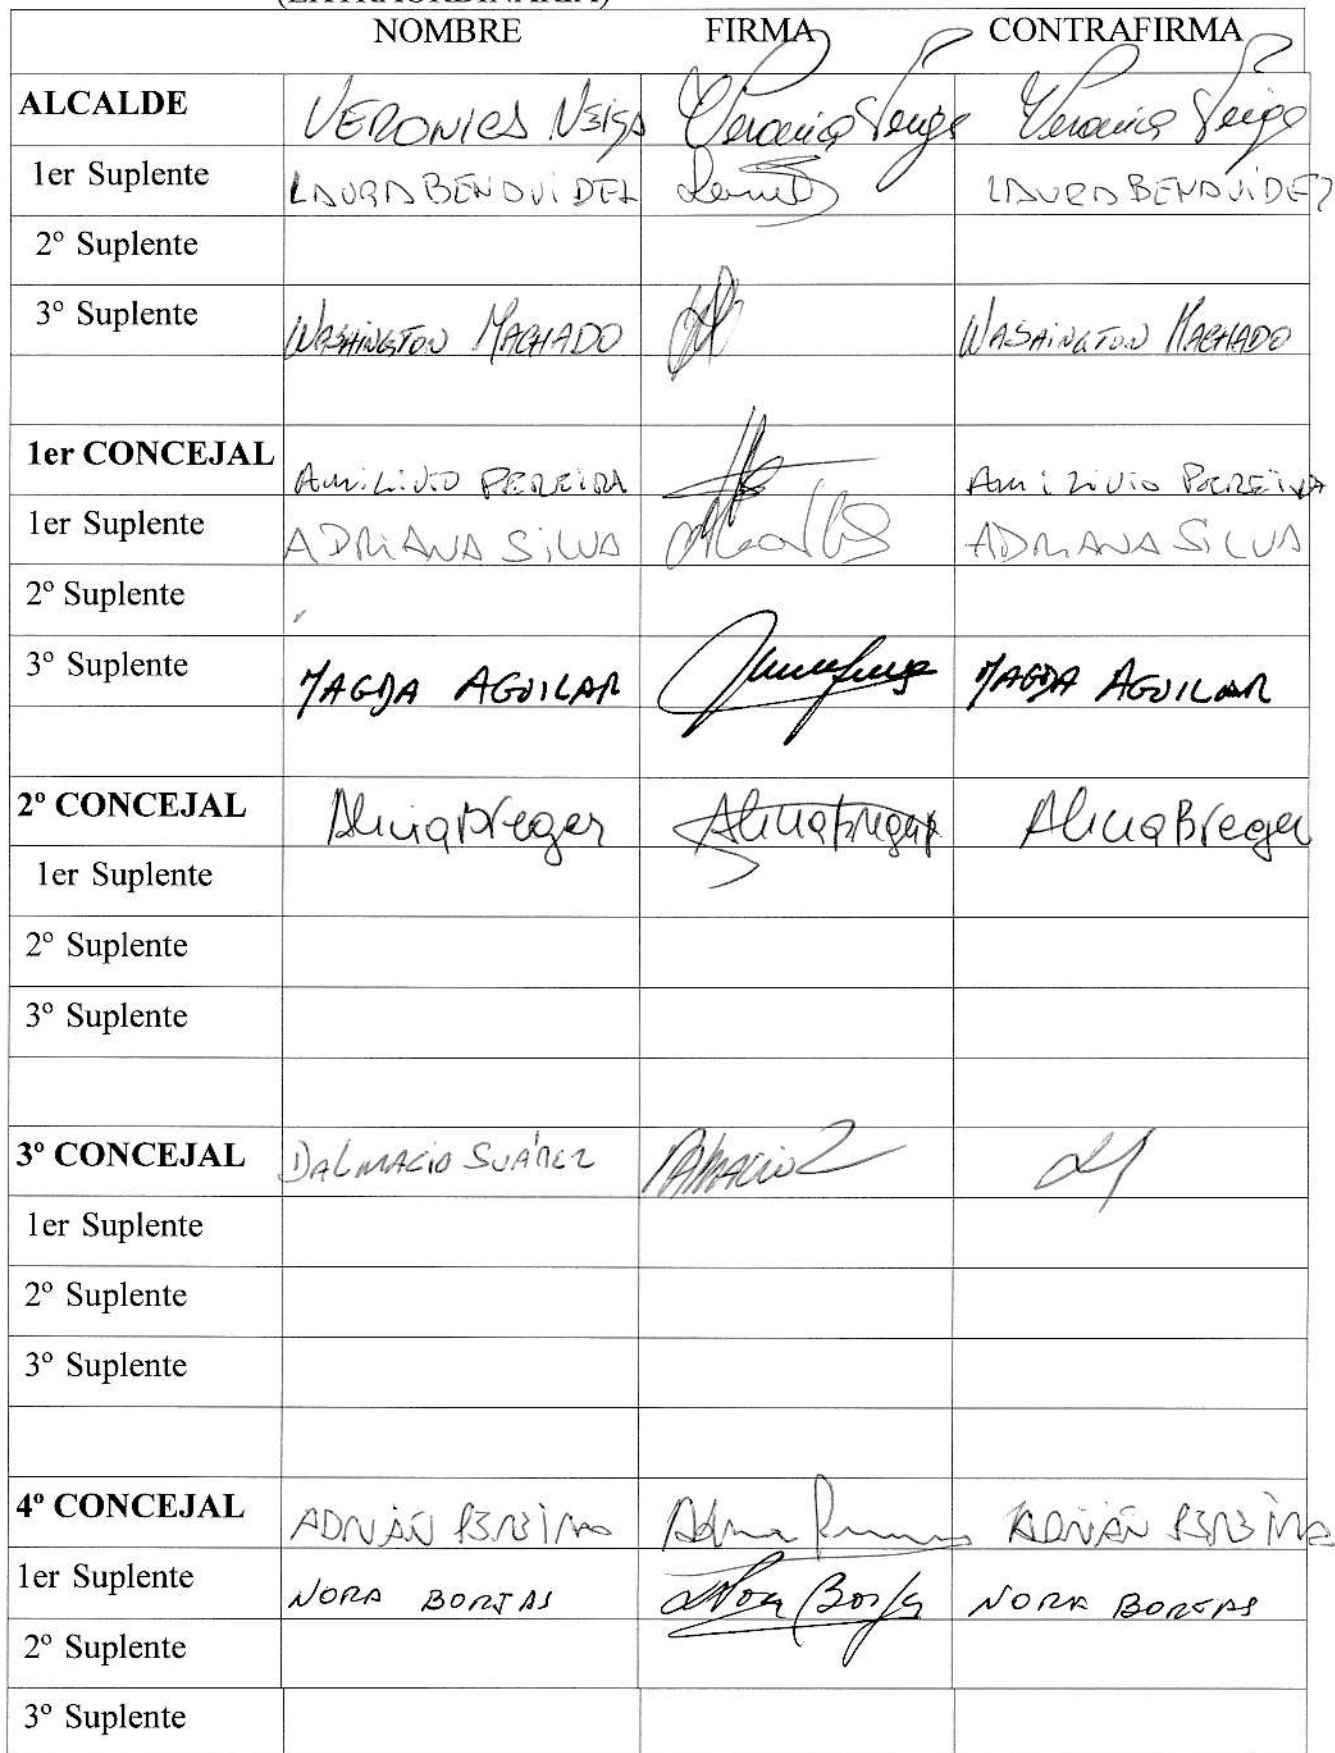 (EXTRAORDINARIA)
NOMBRE FIRMA CONTRAFIRMA
ALCALDE VERONICA Veiga Veronica Veiga Veronica Veiga
1er Suplente LAURA BENAVIDEZ LAURA BENAVIDEZ
2º Suplente
3º Suplente WASHINGTON MACHADO WASHINGTON MACHADO
1er CONCEJAL AMILIVIO PEREIRA AMILIVIO PEREIRA
1er Suplente ADRIANA SILVA ADRIANA SILVA
2º Suplente
3º Suplente MAGDA AGUILAR MAGDA AGUILAR
2º CONCEJAL Alicia Breger Alicia Breger Alicia Breger
1er Suplente
2º Suplente
3º Suplente
3º CONCEJAL DALMACIO SUÁREZ Dalmacio
1er Suplente
2º Suplente
3º Suplente
4º CONCEJAL ADRIÁN PEREIRA ADRIÁN PEREIRA
1er Suplente NORA BORJAS Nora Borja NORA BORJAS
2º Suplente
3º Suplente